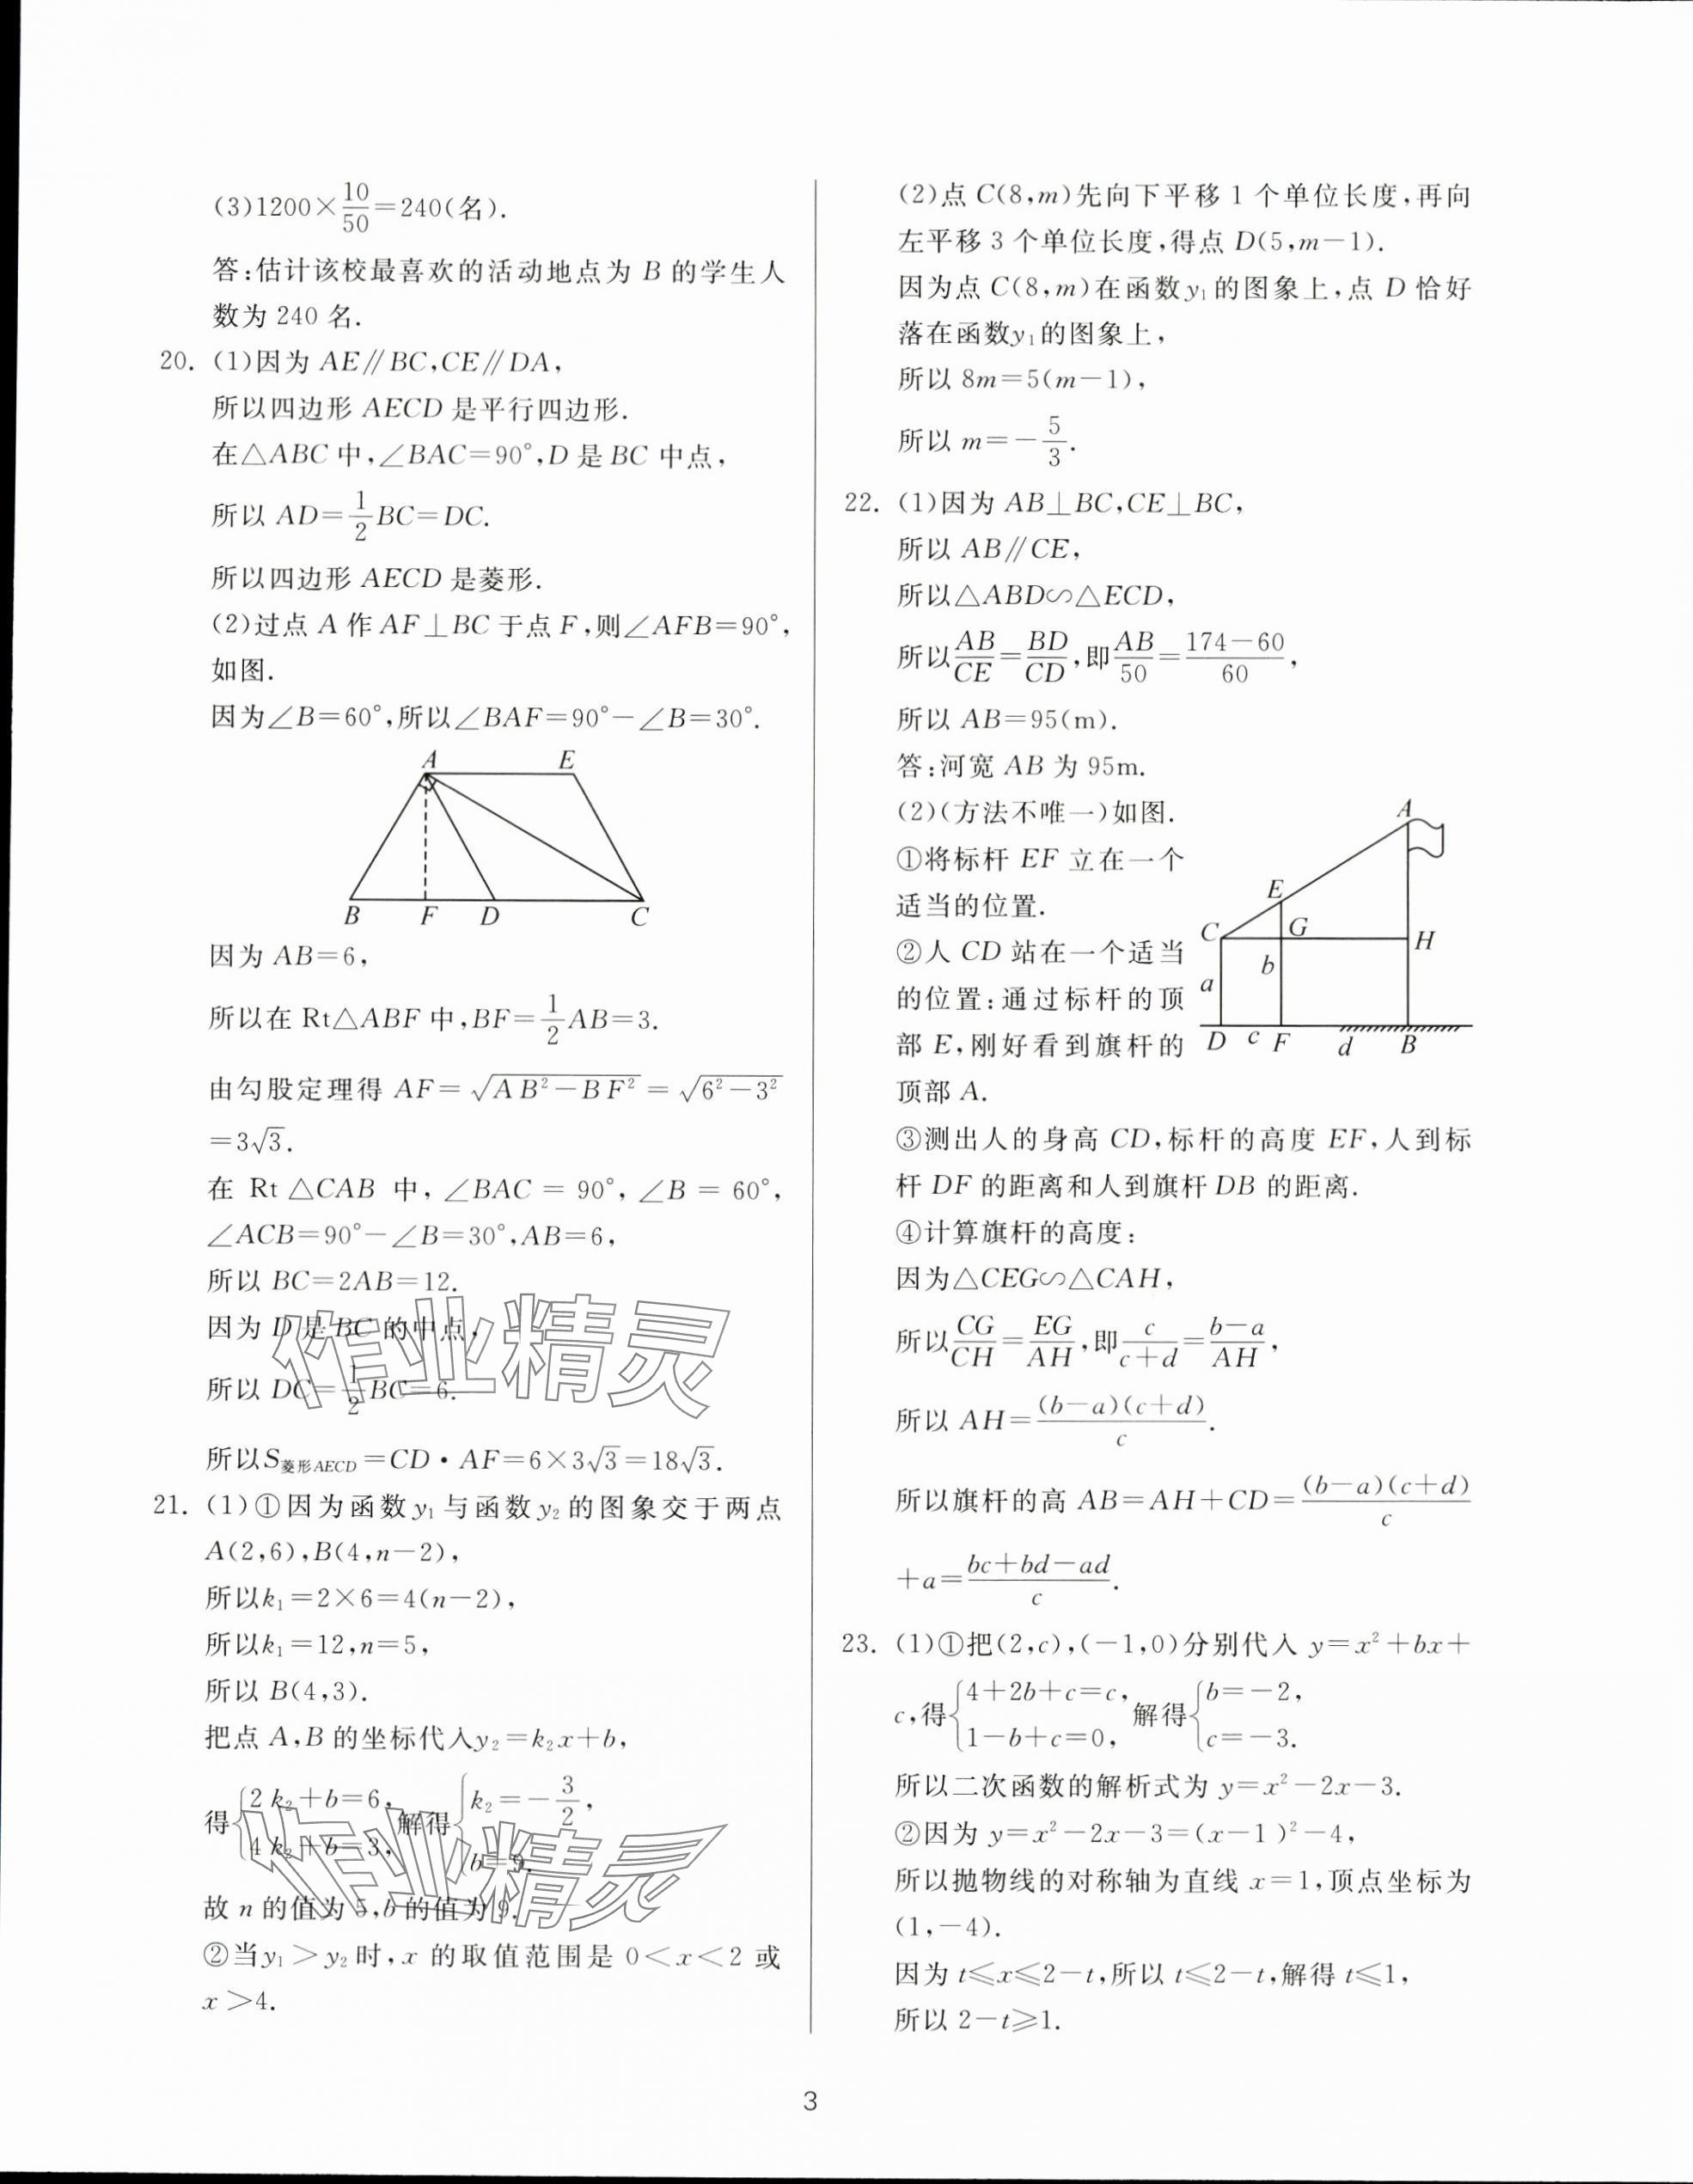 (3)1200×10/50=240(名).
答:估计该校最喜欢的活动地点为 B 的学生人
数为 240 名.
20. (1)因为 AE∥BC,CE∥DA,
所以四边形 AECD 是平行四边形.
在△ABC 中,∠BAC=90°,D 是 BC 中点,
所以 AD=1/2BC=DC.
所以四边形 AECD 是菱形.
(2)过点 A 作 AF⊥BC 于点 F,则∠AFB=90°,
如图.
因为∠B=60°,所以∠BAF=90°-∠B=30°.
A E
B F D C
因为 AB=6,
所以在 Rt△ABF 中,BF=1/2AB=3.
由勾股定理得 AF=√(AB²-BF²)=√(6²-3²)
=3√3.
在 Rt △CAB 中, ∠BAC = 90°, ∠B = 60°,
∠ACB=90°-∠B=30°,AB=6,
所以 BC=2AB=12.
因为 D 是 BC 的中点,
所以 DC=1/2BC=6.
作业精灵
所以S菱形AECD=CD·AF=6×3√3=18√3.
21. (1)①因为函数y₁与函数y₂的图象交于两点
A(2,6),B(4,n-2),
所以k₁=2×6=4(n-2),
所以k₁=12,n=5,
所以 B(4,3).
把点 A,B 的坐标代入y₂=k₂x+b,
得{2k₂+b=6, 4k₂+b=3, 解得{k₂=-3/2, b=9.
作业精灵
故 n 的值为 5,b 的值为 9.
②当y₁>y₂时,x 的取值范围是 0<x<2 或
x>4.
(2)点 C(8,m)先向下平移 1 个单位长度,再向
左平移 3 个单位长度,得点 D(5,m-1).
因为点 C(8,m)在函数y₁的图象上,点 D 恰好
落在函数y₁的图象上,
所以 8m=5(m-1),
所以 m=-5/3.
22. (1)因为 AB⊥BC,CE⊥BC,
所以 AB∥CE,
所以△ABD∽△ECD,
所以AB/CE=BD/CD,即AB/50=(174-60)/60,
所以 AB=95(m).
答:河宽 AB 为 95m.
(2)(方法不唯一)如图.
①将标杆 EF 立在一个
适当的位置.
②人 CD 站在一个适当
的位置:通过标杆的顶
部 E,刚好看到旗杆的
顶部 A.
A
E
C G H
b
a
D c F d B
③测出人的身高 CD,标杆的高度 EF,人到标
杆 DF 的距离和人到旗杆 DB 的距离.
④计算旗杆的高度:
因为△CEG∽△CAH,
所以CG/CH=EG/AH,即c/(c+d)=(b-a)/AH,
所以 AH=(b-a)(c+d)/c.
所以旗杆的高 AB=AH+CD=(b-a)(c+d)/c
+a=(bc+bd-ad)/c.
23. (1)①把(2,c),(-1,0)分别代入 y=x²+bx+
c,得{4+2b+c=c, 1-b+c=0, 解得{b=-2, c=-3.
所以二次函数的解析式为 y=x²-2x-3.
②因为 y=x²-2x-3=(x-1)²-4,
所以抛物线的对称轴为直线 x=1,顶点坐标为
(1,-4).
因为 t⩽x⩽2-t,所以 t⩽2-t,解得 t⩽1,
所以 2-t⩾1.
3